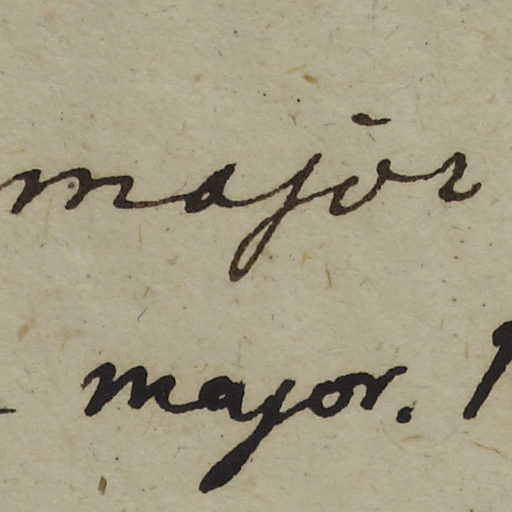 major
major.